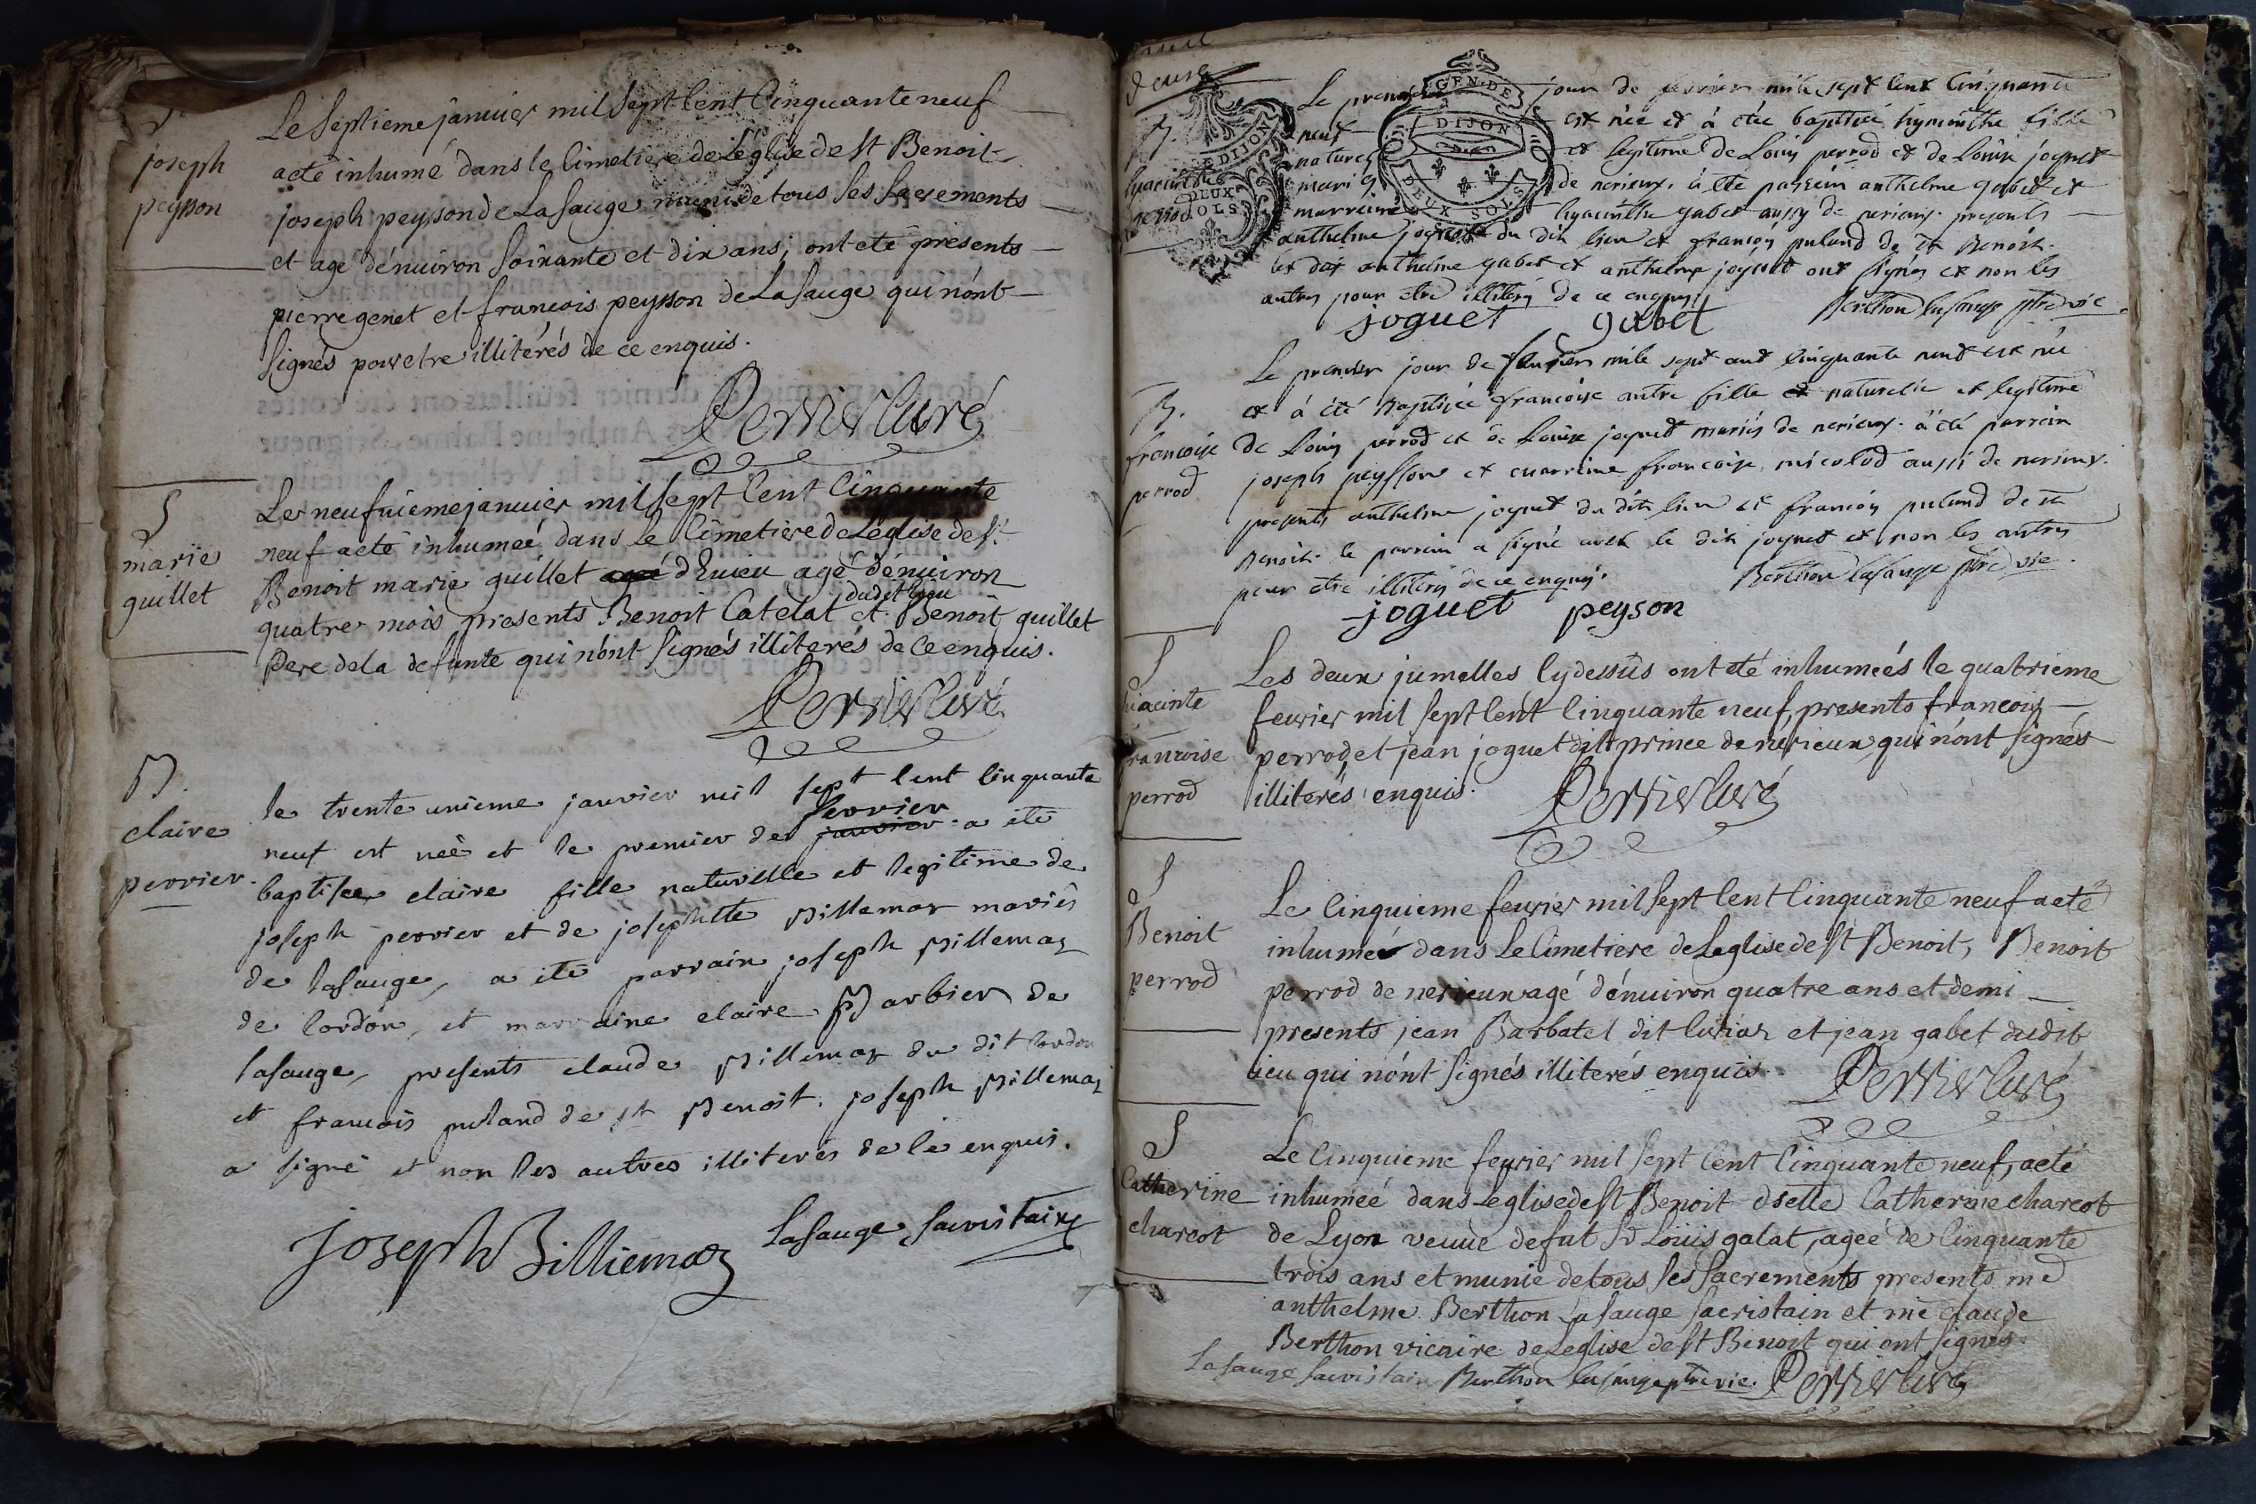 S
joseph
peysson
Le septieme janvier mil sept cent cinquante neuf
a eté inhumé dans le cimetiere de L'église de st Benoit
joseph peysson de La sauge muni de tous ses sacrements
et agé d'énuiron soixante et dix ans, ont eté présents
pierre genet et francois peysson de La sauge qui n'ónt
signés pour etre illitérés de ce enquis.
Perrier curé
S
marie
guillet
Le neufuieme janvier mil sept cent cinquante
neuf a eté inhumeé dans le cimetiere de L'eglise de st
Benoit marie guillet agé d'Evieu agé d'énuiron
dudit lieu
quatre mois presents Benoit Catelat et Benoit guillet
Pere de la defunte qui n'ónt signés illiterés de Ce enquis.
Perrier curé
B.
claire
perrier.
le trente unieme janvier mil sept cent cinquante
fevrier
neuf est neè et le premier de janvier a ete
baptisee claire fille naturelle et legitime de
joseph perrier et de josephte Billemaz mariés
de lasauge, a ete parrain joseph Billemaz
de cordon, et marraine claire Barbier de
lasauge, presents claude Billemaz du dit cordon
et francois puland de st Benoit. joseph Billemaz
a signé et non les autres illiterés de ce enquis.
joseph Billiemaz Lasauge sacristain
B.
hyacinthe
perrod
GEN. DE
DIJON
DEUX SOLS
DIJON
DEUX
SOLS
Le premier jour de fevrier mile sept cent cinquante
neuf est née et à etée baptisée hyacinthe fille
naturelle et legitime de Louis perrod et de Louise joguet
mariés de nerieux. à eté parrein anthelme gabet et
marreine hyacinthe gabet aussy de nerieux. presents
anthelme joguet du dit lieu et françois puland de st Benoit.
les dits anthelme gabet et anthelme joguet ont signés et non les
autres pour etre illiterés de ce enquis.
joguet gabet Berthon lasauge ptre vic.
B.
francoise
perrod
Le premier jour de fevrier mile sept cent cinquante neuf est née
et à été Baptisée francoise autre fille et naturelle et legitime
de Louis perrod et de Louise joguet mariés de nerieux. à eté parrein
joseph peysson et marreine francoise micolod aussi de nerieux.
presents anthelme joguet du dit lieu et françois puland de st
Benoit. le parrein a signé avec le dit joguet et non les autres
pour etre illiterés de ce enquis. Berthon lasauge ptre vic.
joguet peyson
S
hiacinte
francoise
perrod
Les deux jumelles cy dessus ont eté inhumeés le quatrieme
feurier mil sept cent cinquante neuf, presents francois
perrod, et jean joguet dit prince de nerieux qui n'ónt signés
illiterés enquis. Perrier curé
S
Benoit
perrod
Le cinquieme feurier mil sept cent cinquante neuf a eté
inhumé dans Le Cimetiere de L'eglise de st Benoit, Benoit
perrod de nerieux agé d'énuiron quatre ans et demi
presents jean Barbatet dit et jean gabet dudit
lieu qui n'ónt signés illiterés enquis. Perrier curé
S
Catherine
charcot
Le cinquieme feurier mil sept cent cinquante neuf, a eté
inhumeé dans L'eglise de st Benoit dselle Catherine charcot
de Lyon veuve de fut Sr Louis galat, ageé de Cinquante
trois ans et munie de tous ses sacrements presents me
anthelme Berthon La sauge sacristain et me claude
Berthon vicaire de L'eglise de st Benoit qui ont signés.
Lasauge sacristain Berthon lasauge ptre vic. Perrier curé